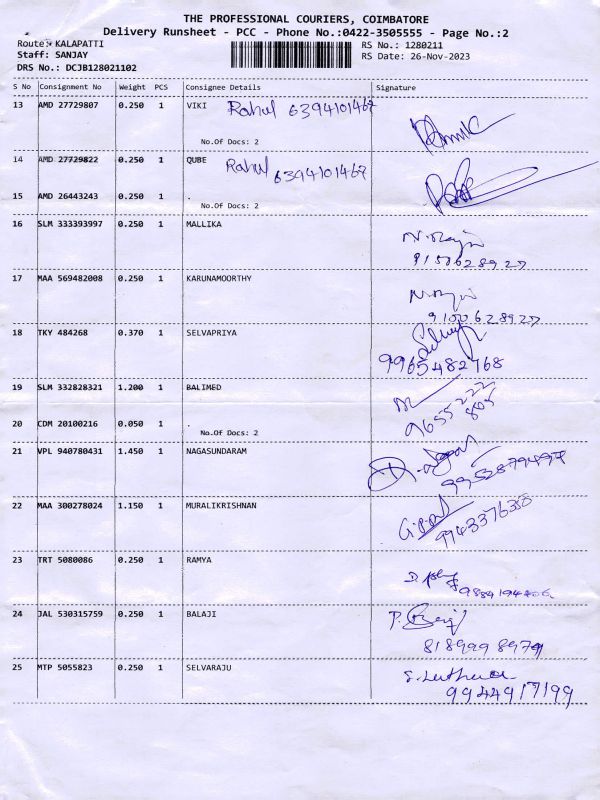 THE PROFESSIONAL COURIERS, COIMBATORE
Delivery Runsheet - PCC - Phone No.:0422-3505555 - Page No.:2
Route: KALAPATTI
RS No.: 1280211
Staff: SANJAY
RS Date: 26-Nov-2023
DRS No.: DCJB128021102
S No Consignment No Weight PCS Consignee Details Signature
13 AMD 27729807 0.250 1 VIKI Rahul 6394101467
No.Of Docs: 2
14 AMD 27729822 0.250 1 QUBE Rahul 6394101467
15 AMD 26443243 0.250 1 .
No.Of Docs: 2
16 SLM 333393997 0.250 1 MALLIKA
17 MAA 569482008 0.250 1 KARUNAMOORTHY
18 TKY 484268 0.370 1 SELVAPRIYA
9965482768
19 SLM 332828321 1.200 1 BALIMED
9655222
805
20 CDM 20100216 0.050 1 .
No.Of Docs: 2
21 VPL 940780431 1.450 1 NAGASUNDARAM
9952879497
22 MAA 300278024 1.150 1 MURALIKRISHNAN
23 TRT 5080086 0.250 1 RAMYA
24 JAL 530315759 0.250 1 BALAJI
8189998979
25 MTP 5055823 0.250 1 SELVARAJU
9944917199